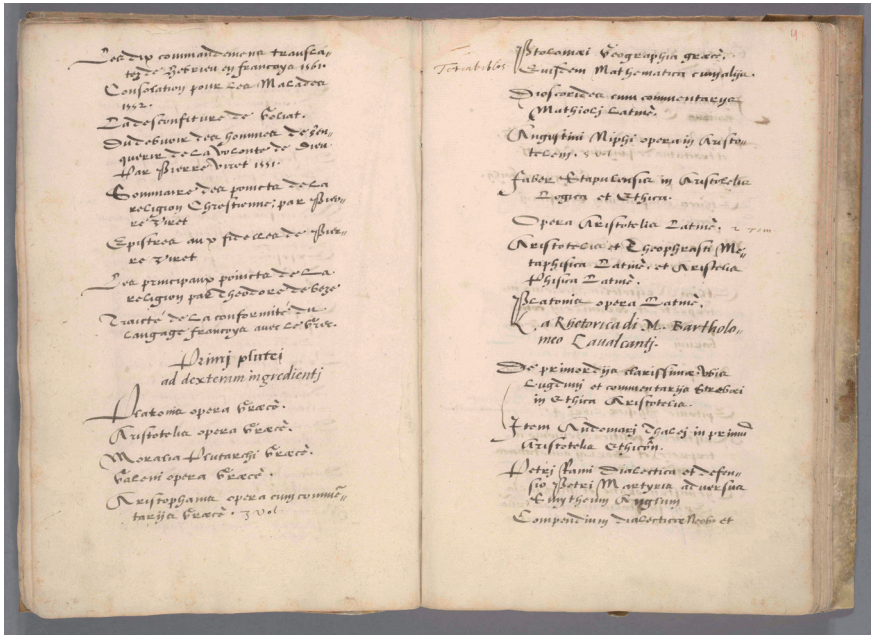 Les dix commandemens transla-
tez de Hebrieu en francoys 1561.
Consolation pour les Malades
1552.
La desconfiture de Goliat.
Du debvoir des hommes d'en-
querir de la volonté de Dieu.
Par Pierre Viret 1551.
Sommaire des poincts de la
religion Chrestienne; par Pier-
re Viret
Epistres aux fidelles de Pier-
re Viret
Les principaux poincts de la
religion par Theodore de beze
Traicté de la conformité du
langage francoys avec le Grec.
Primj plutei
ad dexteram ingredientj
Platonis opera Graecè.
Aristotelis opera Graecè.
Moralia Plutarchi Graecè.
Galeni opera Graecè.
Aristophanis opera cum commē-
tarijs Graecè. 3 vol.
4.
Ptolomaei Geographia graecè.
Eiusdem Mathematica cum alijs.
Dioscorides cum commentarijs
Mathiolj Latinè.
Augustini Niphi opera in Aristo-
telem. 5 vol.
faber Stapulensis in Aristotelis
Logica et Ethica.
Opera Aristotelis Latinè. 2 Tom
Aristotelis et Theophrasti Me-
taphisica Latinè. et Aristotelis
Phisica Latinè.
Platonis opera Latinè.
La Rhetorica di M. Bartholo-
meo Cavalcantj.
De primordijs clarissimae Urbis
Lugdunj et commentarijs Strebaei
in Ethica Aristotelis.
Item Audomarj Thalej in primū
Aristotelis Ethicōn.
Petri Rami Dialectica et defen-
sio Petri Martyris adversus
Smytheum Anglum
Compendium dialecticae et